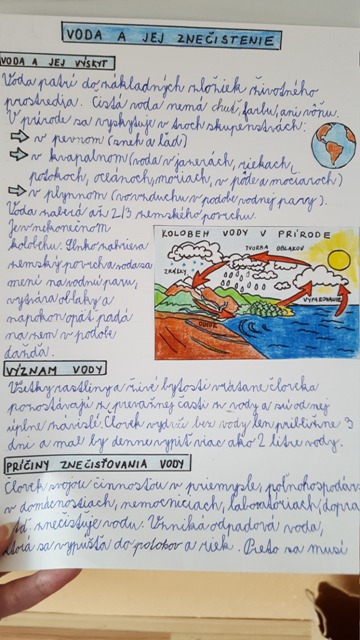 VODA A JEJ ZNEČISTENIE
VODA A JEJ VÝSKYT
Voda patrí do základných zložiek životného
prostredia. Čistá voda nemá chuť, farbu, ani vôňu.
V prírode sa vyskytuje v troch skupenstvách:
v pevnom (sneh a ľad)
v kvapalnom (voda v jazerách, riekach,
potokoch, oceánoch, moriach, v pôde a močiaroch)
v plynnom (vo vzduchu v podobe vodnej pary).
Voda zaberá až 2/3 zemského povrchu.
Je v nekonečnom
kolobehu. Slnko zahrieva
zemský povrch a voda sa
mení na vodnú paru,
vytvára oblaky a
napokon opäť padá
na zem v podobe
dažďa.
KOLOBEH VODY V PRÍRODE
TVORBA OBLAKOV
ZRÁŽKY
VYPAROVANIE
ODTOK
VÝZNAM VODY
Všetky rastliny a živé bytosti vrátane človeka
pozostávajú z prevažnej časti z vody a sú od nej
úplne závislé. Človek vydrží bez vody len približne 3
dni a mal by denne vypiť viac ako 2 litre vody.
PRÍČINY ZNEČISŤOVANIA VODY
Človek svojou činnosťou v priemysle, poľnohospodár
v domácnostiach, nemocniciach, laboratóriach, dopra
atď. znečisťuje vodu. Vzniká odpadová voda,
ktorá sa vypúšťa do potokov a riek. Preto sa musí